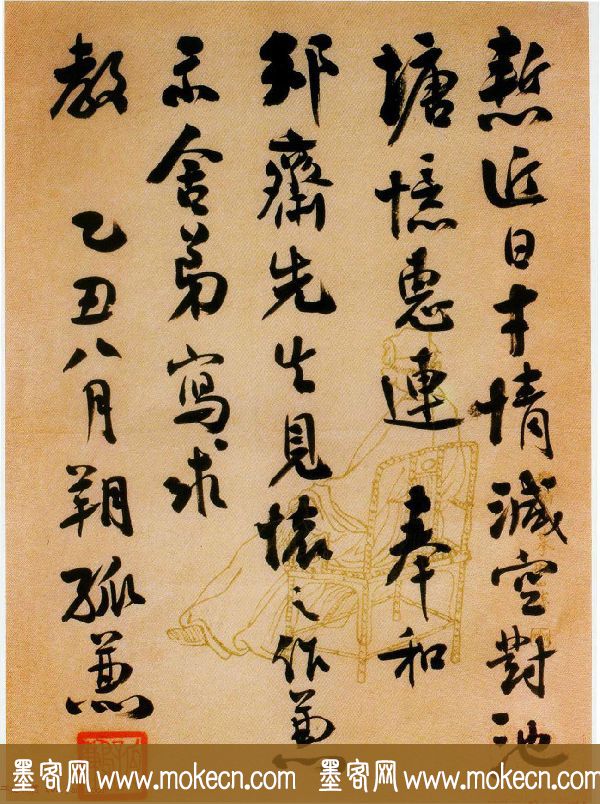 慙近日才情減空對池
塘憶惠連 奉和
邦齋先生見懷之作兼
示舍弟寫求
教
乙丑八月朔孤兼
墨客网 www.mokecn.com 墨客网 www.mokecn.com